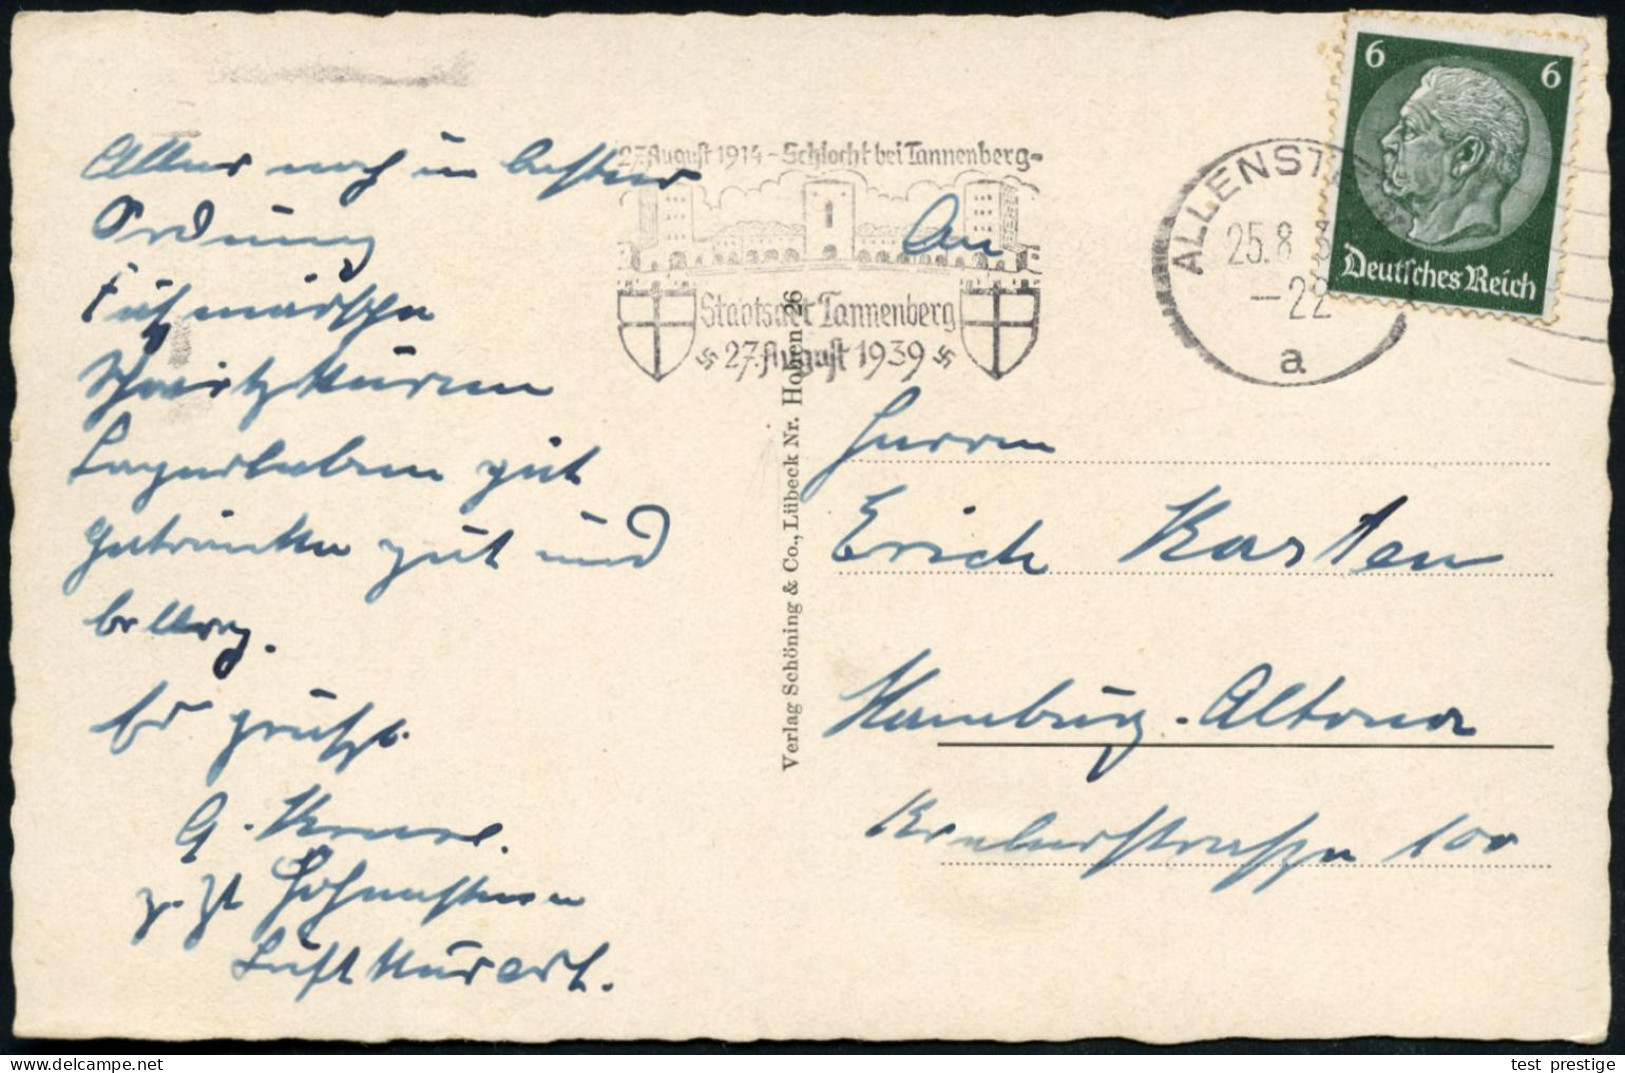 Alles noch in bester
Ordnung
Fußmärsche
Schwitzkuren
Lagerleben gut
Getränke gut und
billig.
Es grüßt
G. Kruse.
z. Zt. Hohenstein
Luftkurort.
27. August 1914 - Schlacht bei Tannenberg -
Staatsakt Tannenberg
27. August 1939
ALLENST
25.8.3
-22
a
6 6
Deutsches Reich
Verlag Schöning & Co., Lübeck Nr. Hohen 26
An
Herrn
Erich Karsten
Hamburg-Altona
straße 100
test prestige